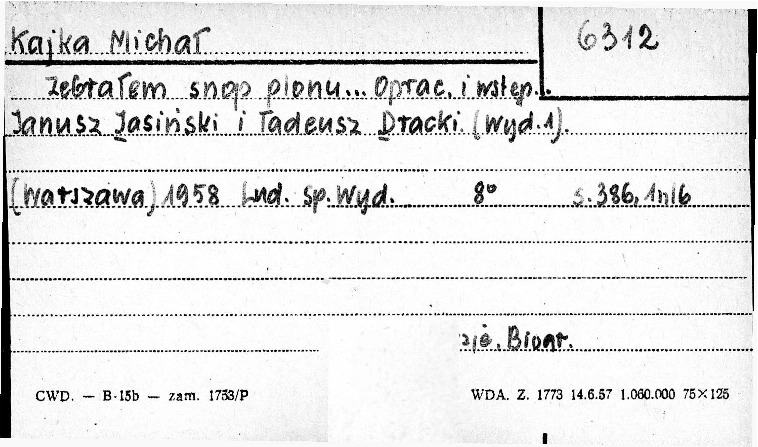 Kajka Michał
6312
Zebrałem snop plonu... Oprac. i wstęp..
Janusz Jasiński i Tadeusz Oracki. (Wyd.1).
(Warszawa) 1958 Lud. Sp. Wyd. 8° s. 386, 1nlb
Biogr.
CWD. — B-15b — zam. 1753/P
WDA. Z. 1773 14.6.57 1.060.000 75×125